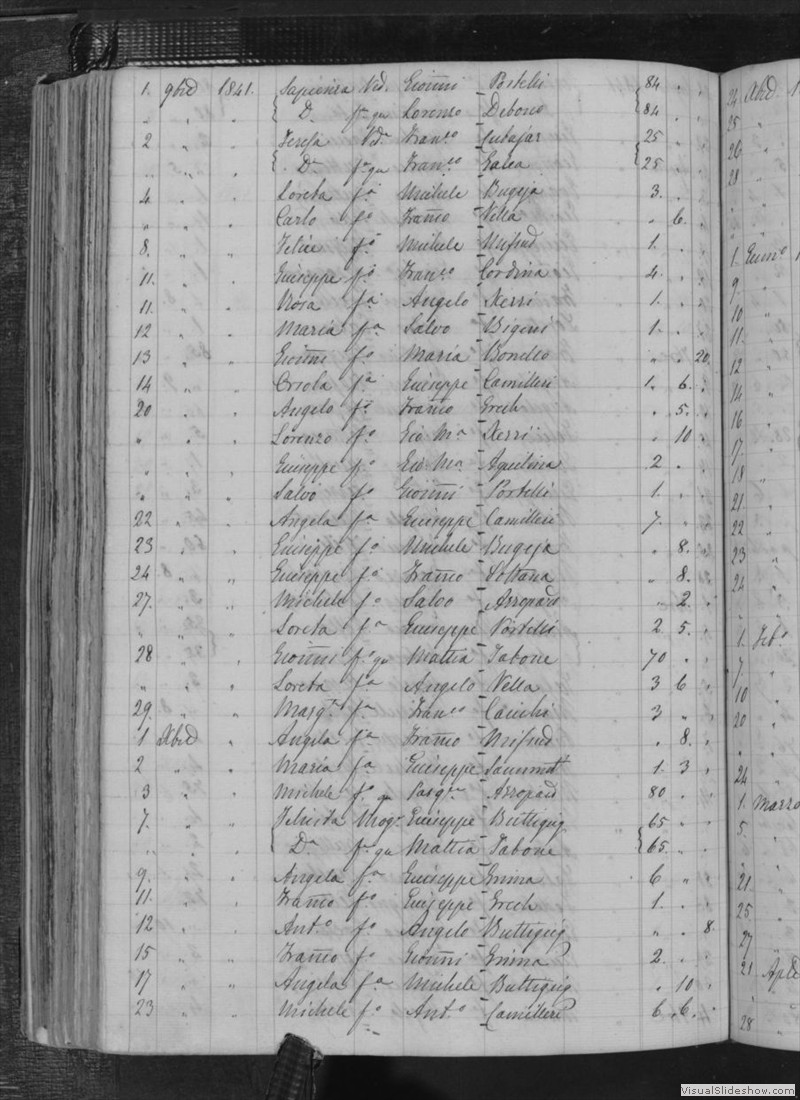 1. 9bre 1841. Sapienza Ved. Gioñni Portelli 84 " "
" " " { Da fa qu Lorenzo Debono { 84 " "
2 " " Teresa Va Franco 25 " "
" " " { Da fa qu Franco Galea { 25 " "
4 " " Loreta fa Michele Bugeja 3. " "
" " " Carlo fo Frañco Vella " 6. "
8. " " Felice fo Michele Mifsud 1. " "
11. " " Giuseppe fo Franco Cordina 4. " "
11. " " Rosa fa Angelo Xerri 1. " "
12 " " Maria fa Salvo 1. " "
13 " " Gioñni fo Maria Bonello " " 20.
14 " " Orsola fa Giuseppe Camilleri 1. 6. "
20 " " Angelo fo Frañco Grech " 5. "
" " " Lorenzo fo Gio Ma Xerri " 10 "
" " " Giuseppe fo Gio Ma Aquilina 2 " "
" " " Salvo fo Gioñni Portelli 1. " "
22 " " Angela fa Giuseppe Camilleri 7. " "
23 " " Giuseppe fo Michele Bugeja " 8. "
24 " " Giuseppe fo Frañco Soltana " 8. "
27. " " Michele fo Salvo Azzopardi " 2. "
" " " Loreta fa Giuseppe Portelli 2 5. "
28 " " Gioñni fo qu Mattia Tabone 70 " "
" " " Loreta fa Angelo Vella 3 6 "
29. " " Margta fa Franco 3 " "
1 Xbre " Angela fa Frañco Mifsud " 8. "
2 " " Maria fa Giuseppe Sammut 1. 3 "
3 " " Michele fo qu Azzopardi 80 " "
7. " " { Felicita Mog. Giuseppe Buttigieg { 65 " "
" " " { Da fa qu Mattia Tabone { 65. " "
9. " " Angela fa Giuseppe Grima 6 " "
11. " " Frañco fo Giuseppe Grech 1. " "
12 " " Anto fo Angelo Buttigieg " " 8.
15 " " Frañco fo Gioñni Grima 2. " "
17 " " Angela fa Michele Buttigieg " 10 "
23 " " Michele fo Anto Camilleri 6. 6. "
24 Abd 1
25 "
26 "
28 "
1. 1
9.
10
11.
12
14
16
17.
18
21.
22
23
24
1. Feb.
7.
10
20
24
1. Marzo
5.
21
25
27
21 Aple
28
VisualSlideshow.com